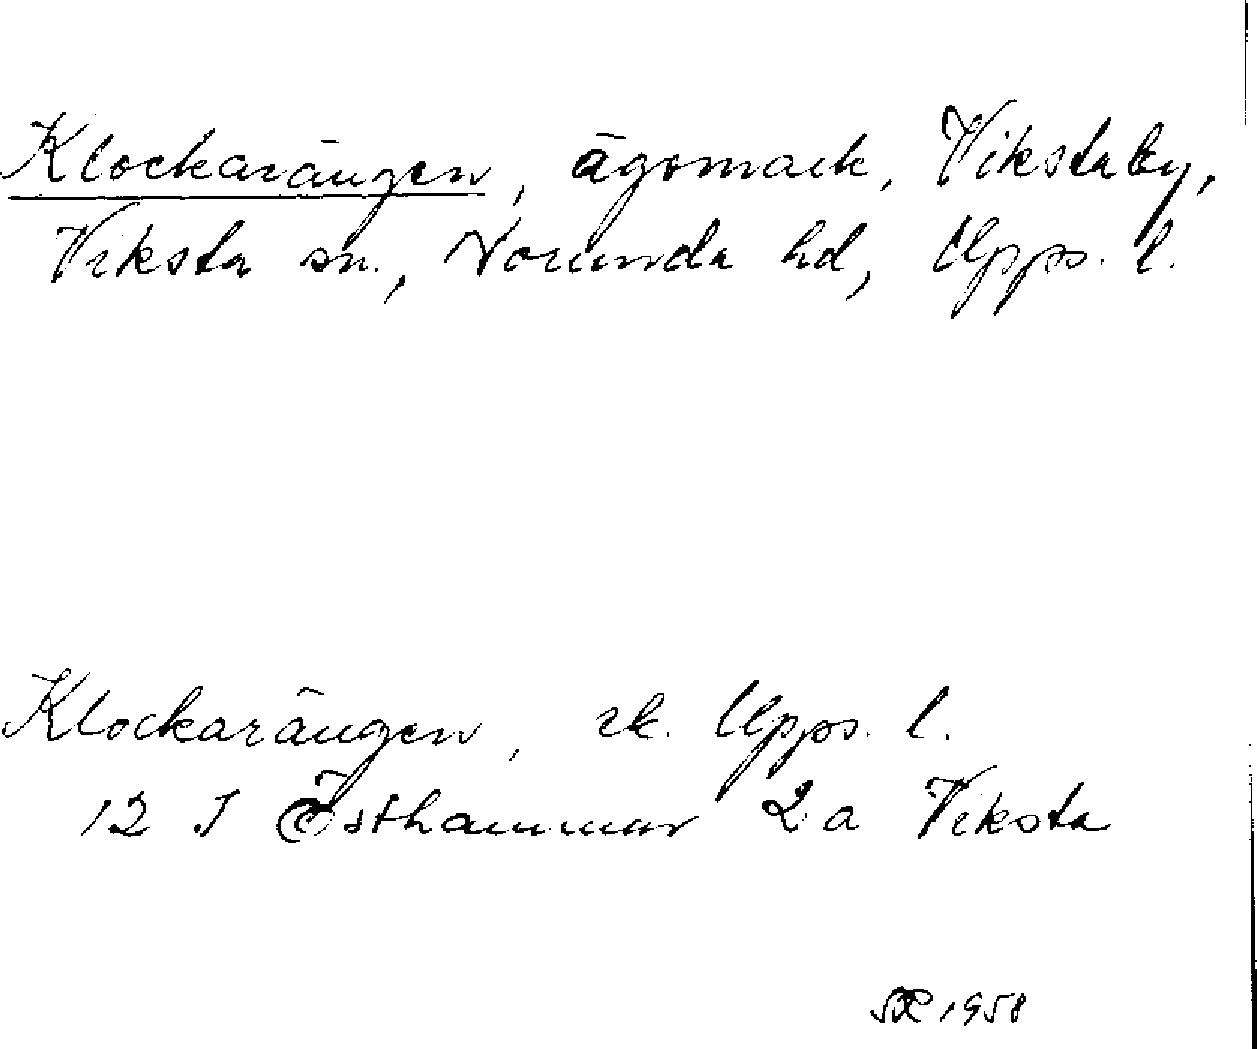 Klockarängen, ägomark, Viksta by,
Viksta sn., Norunda hd, Upps. l.
Klockarängen, ek. Upps. l.
12 I Östhammar 2a Viksta
1958